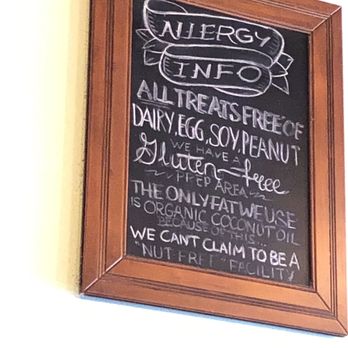 ALLERGY
INFO
ALL TREATS FREE OF
DAIRY, EGG, SOY, PEANUT
WE HAVE A
Gluten-free
PREP AREA
THE ONLY FAT WE USE
IS ORGANIC COCONUT OIL
BECAUSE OF THIS...
WE CAN'T CLAIM TO BE A
"NUT FREE" FACILITY